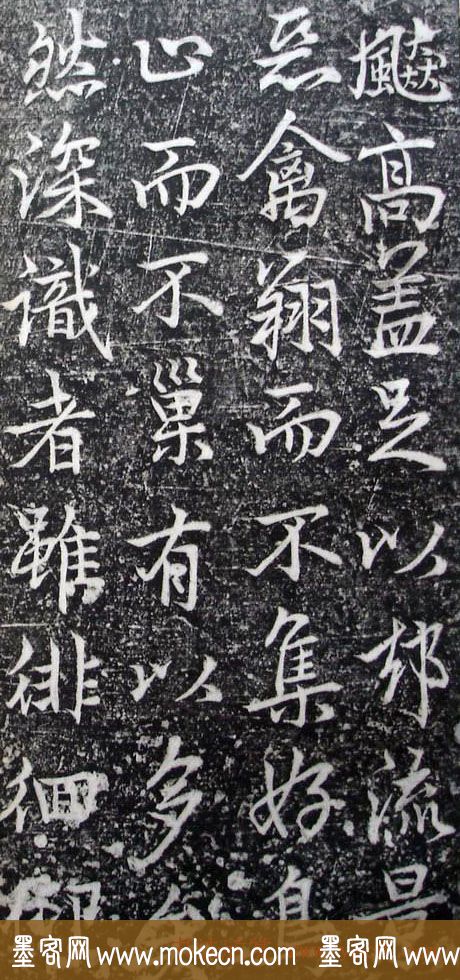 飇高盖足以却流景
惡禽翔而不集好鳥
止而不巢有以多
然深識者雖徘徊
墨客网 www.mokecn.com 墨客网 www.mokecn.com